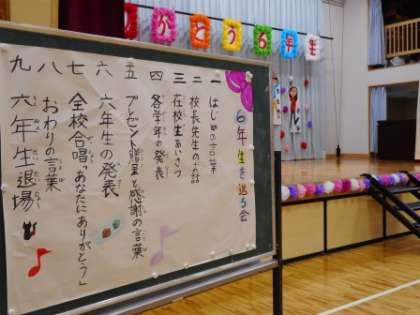 りがとう６年生
６年生を送る会
一 はじめの言葉
二 校長先生のお話
三 在校生あいさつ
四 各学年の発表
五 プレゼント贈呈と感謝の言葉
六 六年生の発表
七 全校合唱「あなたにありがとう」
八 おわりの言葉
九 六年生退場